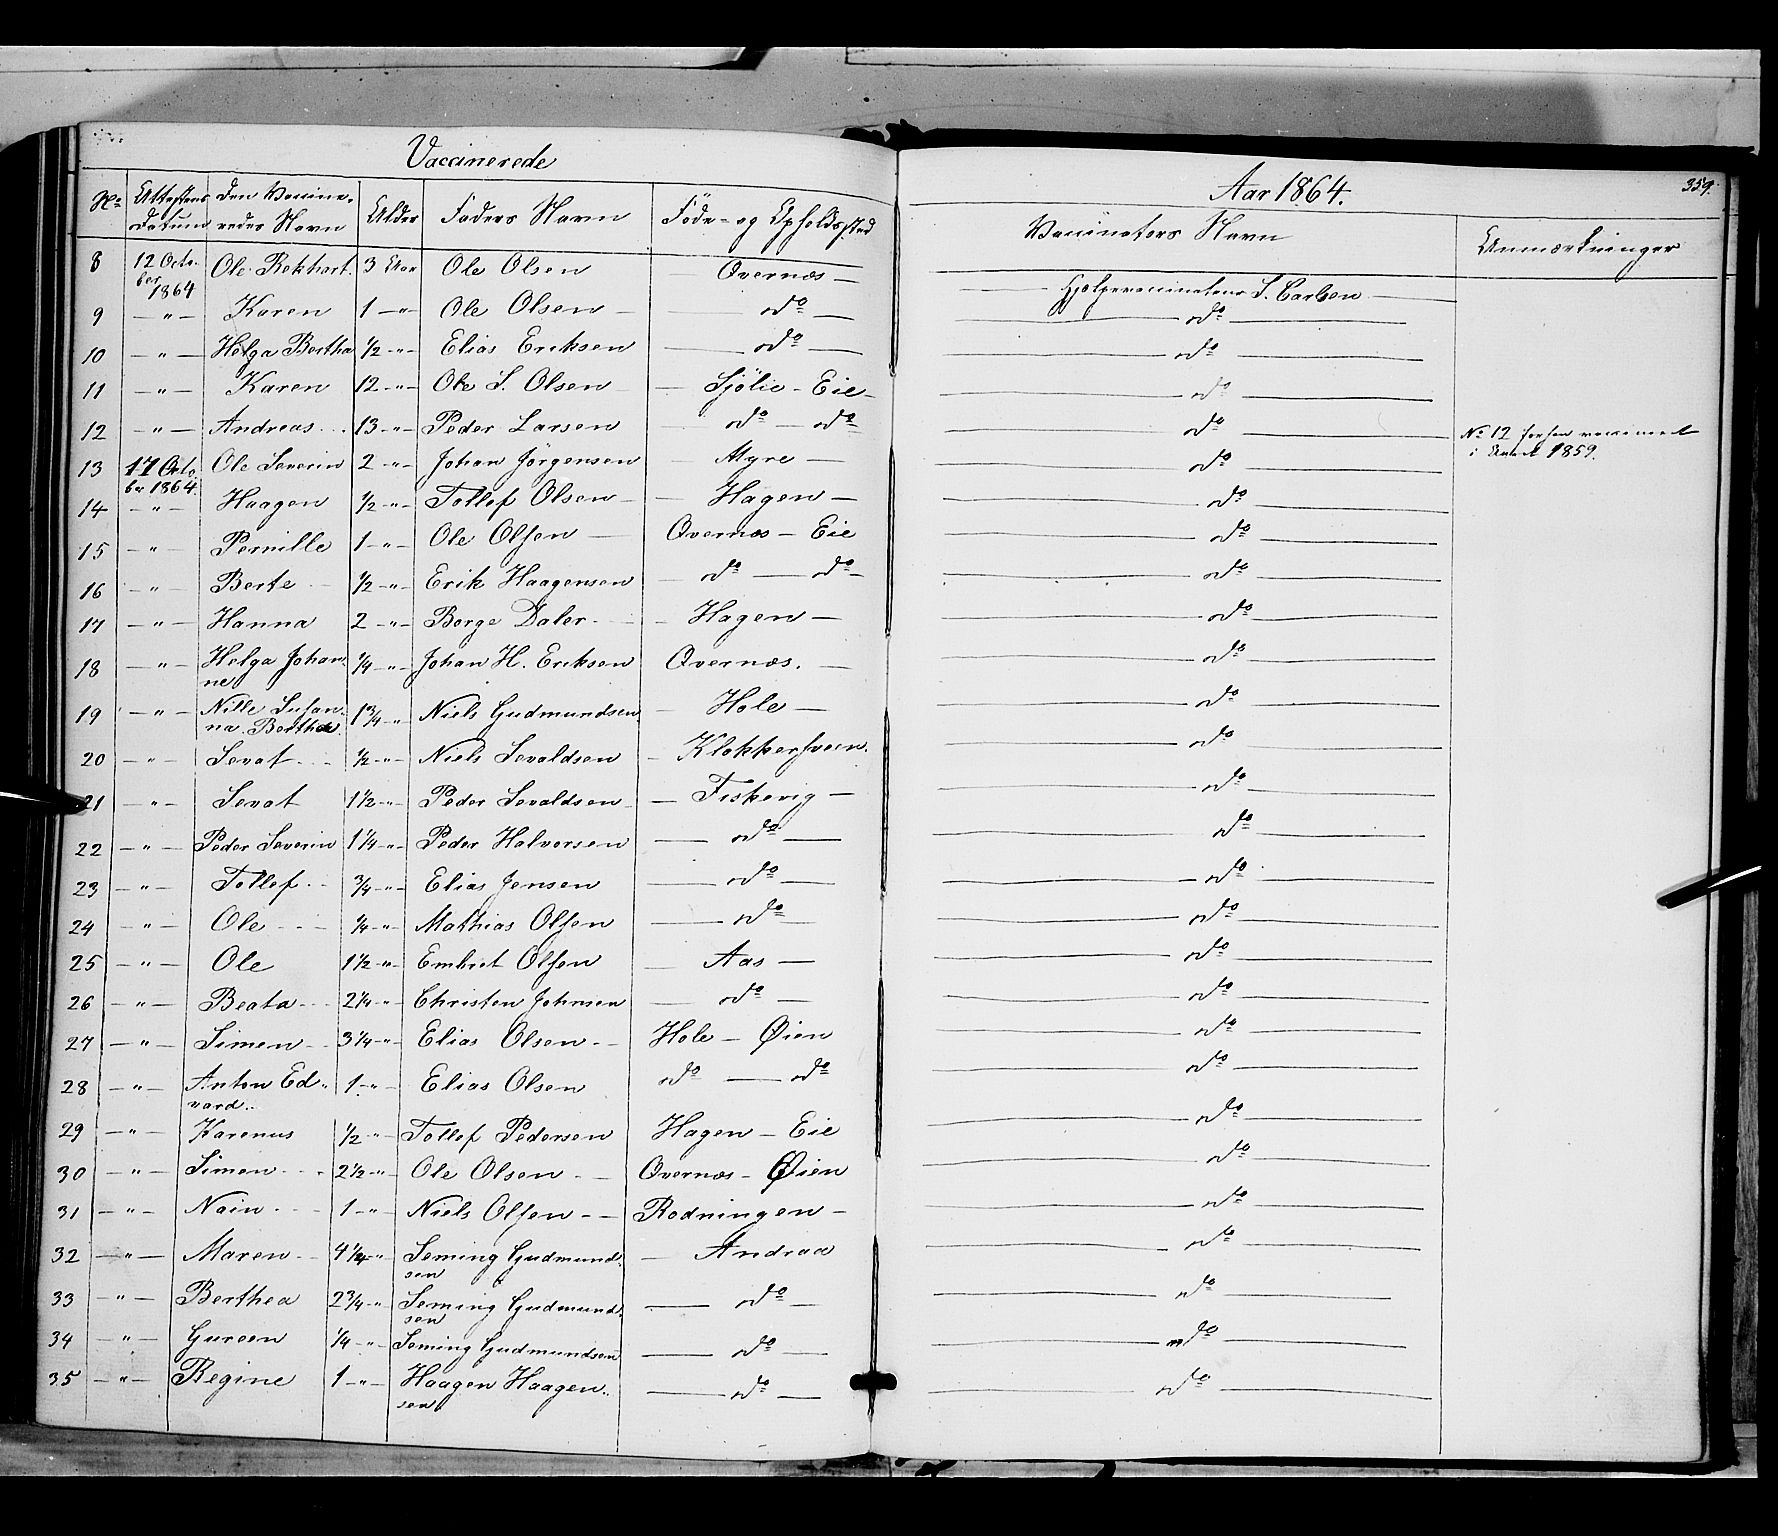 Vaccinerede
Aar 1864.
359.
No | Attestens Datum | Den Vaccineredes Navn | Alder | Faders Navn | Føde- og Opholdssted | Vaccinators Navn | Anmærkninger
8 | 12 October 1864 | Ole Rekhart. | 3 Aar | Ole Olsen | Overnæs — | Hjelpevaccinateur S. Carlsen
9 | — " — | Karen | 1 — " | Ole Olsen — | — do — | do
10 | — " — | Helga Bertha | 1/2 - " - | Elias Eriksen | — do — | do
11 | — " — | Karen | 12 - " - | Ole S. Olsen | — Sjölie - Eie - | do
12 | — " — | Andreas | 13 - " - | Peder Larsen | do — do | do | No 12 forhen vaccineret i Aaret 1859.
13 | 17 October 1864. | Ole Severin | 2 - " - | Johan Jörgensen | — Myre — | do
14 | — " — | Haagen | 1/2 - " - | Tollef Olsen | — Hagen — | do
15 | — " — | Pernille | 1 - " - | Ole Olsen | Overnæs — Eie | do
16 | — " — | Berte | 1/2 - " - | Erik Haagensen | do — do - | do
17 | — " — | Hanna | 2 - " - | Borge Daler | — Hagen — | do
18 | — " — | Helga Johanne | 1/4 - " - | Johan H. Eriksen | Overnæs. — | do
19 | — " — | Nille Susanna Berthea | 1 3/4 - " | Niels Gudmundsen | — Hole — | do
20 | — " — | Sevat | 1/2 - " - | Niels Sevaldsen | — Klokkersveen. | do
21 | — " — | Sevat | 1 1/2 - " - | Peder Sevaldsen | — Fiskevig — | do
22 | — " — | Peder Severin | 1 1/4 - " | Peder Halvorsen | — do — | do
23 | — " — | Tollef | 3/4 - " - | Elias Jensen | — do — | do
24 | — " — | Ole | 1/4 - " - | Mathias Olsen | — do — | do
25 | — " — | Ole | 1 1/2 - " - | Embret Olsen | — Aas — | do
26 | — " — | Beata | 2 1/4 - " | Christen Johnsen | — do — | do
27 | — " — | Simen | 3 1/4 - " | Elias Olsen | Hole — Øien | do
28 | — " — | Anton Edvard | 1 - " - | Elias Olsen | do — do | do
29 | — " — | Karenus | 1/2 - " - | Tollef Pedersen | Hagen — Eie | do
30 | — " — | Simen | 2 1/2 - " | Ole Olsen | Overnæs - Øien | do
31 | — " — | Nain | 1 - " - | Niels Olsen | Rodningen — | do
32 | — " — | Maren | 4 1/4 - " | Seming Gudmundsen | — Andraa | do
33 | — " — | Berthea | 2 3/4 - " | Seming Gudmundsen | — do — | do
34 | — " — | Gureen | 1/4 - " - | Seming Gudmundsen | — do — | do
35 | — " — | Regine | 1 - " - | Haagen Haagensen | — do — | do